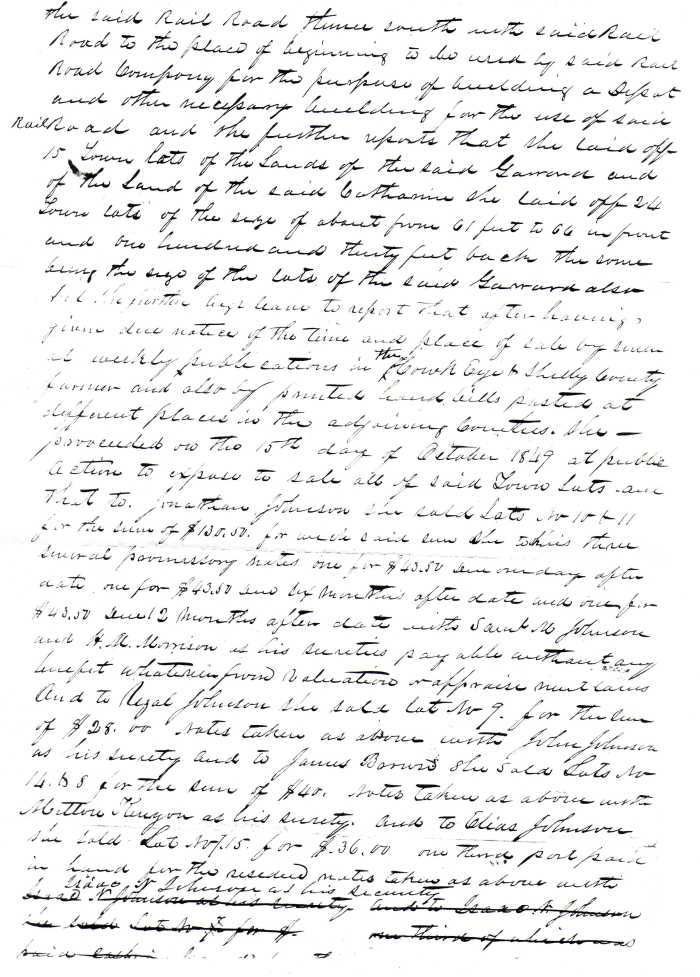 the said Rail Road thence south with said Rail
Road to the place of beginning to be used by said Rail
Road Company for the purpose of building a Depot
and other necessary building for the use of said
Rail Road and she further reports that she laid off
15 Town lots of the Lands of the said Garrard and
of the Land of the said Catharine she laid off 24
Town lots of the size of about from 61 feet to 66 in front
and one hundred and thirty feet back the same
being the size of the lots of the said Garrard also
further begs leave to report that after having
given due notice of the time and place of sale by
weekly publications in the Hawk Eye & Shelby County
farmer and also by printed hand bills posted at
different places in the adjoining Counties. She —
proceeded on the 15th day of October 1849 at public
Action to expose to sale all of said Town Lots and
that to Jonathan Johnson she sold Lots No 10 & 11
for the sum of $130.50. for said sum she three
several promissory notes one for $43.50 due one day after
date one for $43.50 due six months after date and one for
$43.50 due 12 months after date with Saml M Johnson
and H. M. Morrison as his sureties payable without any
benefit whatever from valuation or appraisement laws
And to Johnson she sold lot No 9. for the sum
of $28.00 Notes taken as above with John Johnson
as his surety and to James she sold Lots No
14. & 8 for the sum of $40. Notes taken as above with
as his surety. And to Elias Johnson
she sold Lot No 15. for $36.00 one third part paid
in hand for the notes taken as above with
Isaac N Johnson as his security
N Johnson as his surety and to Isaac N Johnson
she sold Lot No for $. one third of which was
paid